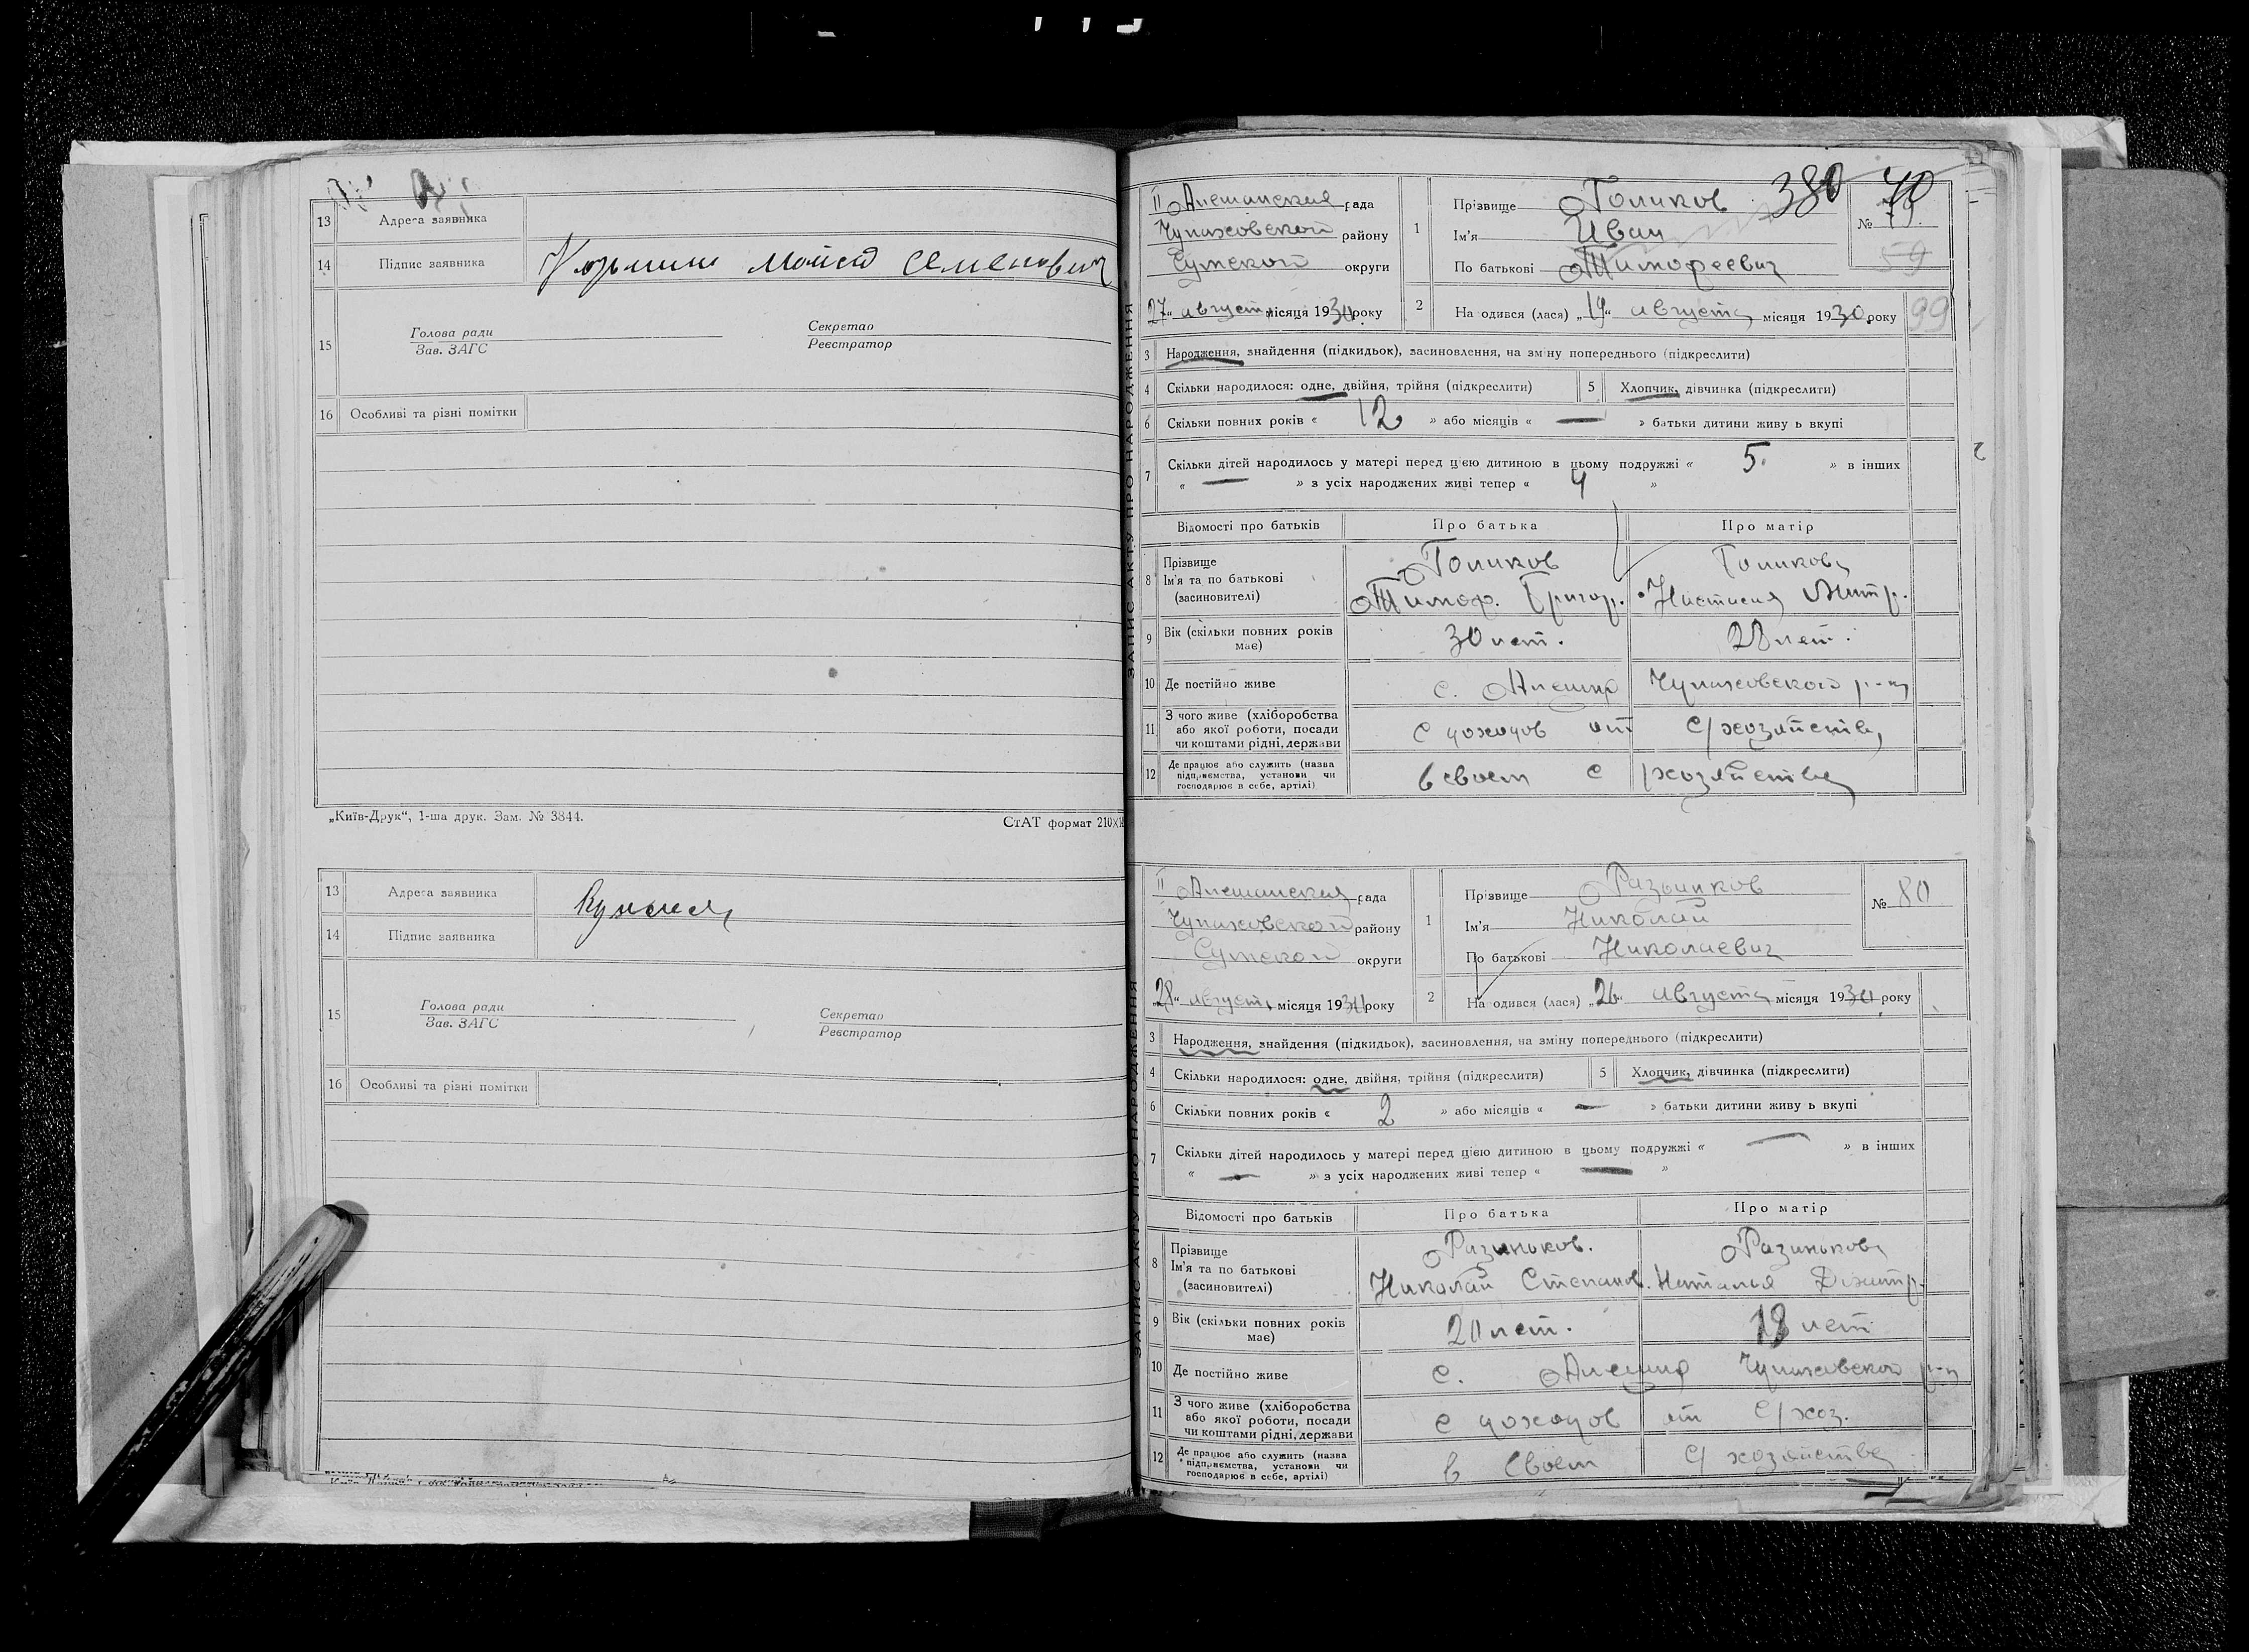 13 Адреса заявника
14 Підпис заявника Моисей Семенович
15 Голова ради Секретар
Зав. ЗАГС Реєстратор
16 Особливі та різні помітки
„Київ-Друк“, 1-ша друк. Зам. № 3844.
СтАТ формат 210×1
13 Адреса заявника
14 Підпис заявника
15 Голова ради Секретар
Зав. ЗАГС Реєстратор
16 Особливі та різні помітки
ЗАПИС АКТУ ПРО НАРОДЖЕННЯ
II Алешанская рада
Чупаховской району
Сумской округи
27 августа місяця 1930 року
1 Прізвище Голиков 380 40
Ім'я Иван № 79
По батькові Тимофеевич 59
2 На одився (лася) „19“ августа місяця 1930 року 99
3 Народження, знайдення (підкидьок), засиновлення, на зміну попереднього (підкреслити)
4 Скільки народилося: одне, двійня, трійня (підкреслити) 5 Хлопчик, дівчинка (підкреслити)
6 Скільки повних років « 12 » або місяців « — » батьки дитини живу ь вкупі
7 Скільки дітей народилось у матері перед цією дитиною в цьому подружжі « 5 » в інших
« — » з усіх народжених живі тепер « 4 »
Відомості про батьків Про батька Про матір
8 Прізвище Голиков Голикова
Ім'я та по батькові Тимоф. Григор. Настасия Митр.
(засиновителі)
9 Вік (скільки повних років має) 30 лет. 28 лет.
10 Де постійно живе с. Алешня Чупаховского р-на
11 З чого живе (хліборобства
або якої роботи, посади с доходов от с/хозяйства
чи коштами рідні, держави
12 Де працює або служить (назва
підприємства, установи чи в своем с/хозяйстве
господарює в себе, артілі)
ЗАПИС АКТУ ПРО НАРОДЖЕННЯ
II Алешанская рада
Чупаховской району
Сумской округи
„28“ августа місяця 1930 року
1 Прізвище Разиньков
Ім'я Николай № 80
По батькові Николаевич
2 На одився (лася) „26“ августа місяця 1930 року
3 Народження, знайдення (підкидьок), засиновлення, на зміну попереднього (підкреслити)
4 Скільки народилося: одне, двійня, трійня (підкреслити) 5 Хлопчик, дівчинка (підкреслити)
6 Скільки повних років « 2 » або місяців « — » батьки дитини живу ь вкупі
7 Скільки дітей народилось у матері перед цією дитиною в цьому подружжі « — » в інших
« — » з усіх народжених живі тепер « — »
Відомості про батьків Про батька Про матір
8 Прізвище Разиньков. Разинькова
Ім'я та по батькові Николай Степанов. Наталья Дмитр.
(засиновителі)
9 Вік (скільки повних років має) 20 лет. 18 лет
10 Де постійно живе с. Алешня Чупаховского р-на
11 З чого живе (хліборобства
або якої роботи, посади с доходов от с/хоз.
чи коштами рідні, держави
12 Де працює або служить (назва
підприємства, установи чи в своем с/хозяйстве
господарює в себе, артілі)